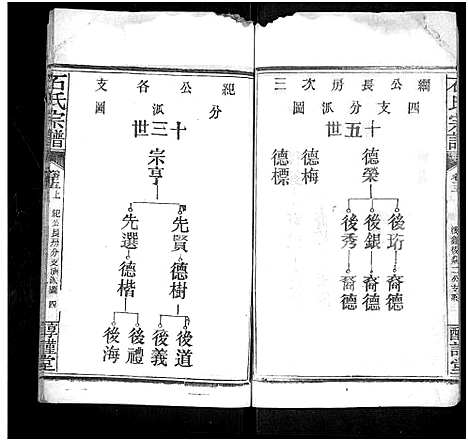 石氏宗譜
綱公長房次三
四支分派圖
十五世
德榮
後珩
後銀
後秀
裔德
裔德
裔德
德梅
德標
紀公各支
分派圖
十三世
宗亨
先賢
先選
德樹
德楷
後道
後義
後禮
後海
石氏宗譜
卷五上
紀公長房分支派圖
四
惇謹堂